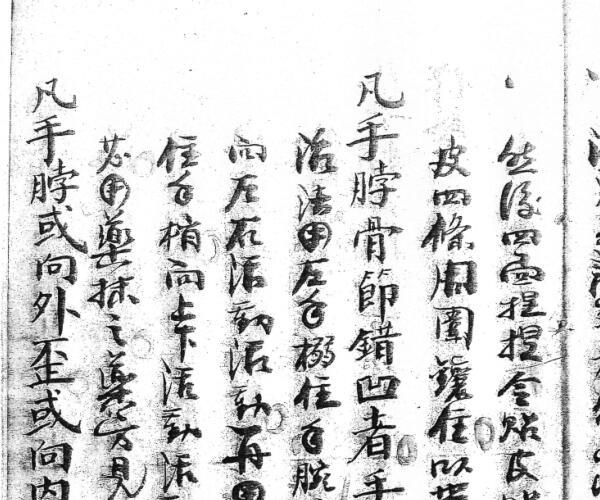 然後四面捏捏令貼皮
皮四條周圍纏住以
凡手脖骨節錯凹者手
治法用左手搦住手腕
向左右活動活動再用
住手梢向上下活動活
必用藥抹之藥方見
凡手脖或向外歪或向內